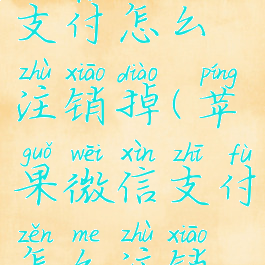 支付怎么
zhù xiāo diào píng
注销掉(苹
guǒ wēi xìn zhī fù
果微信支付
zěn me zhù xiāo
怎么注销